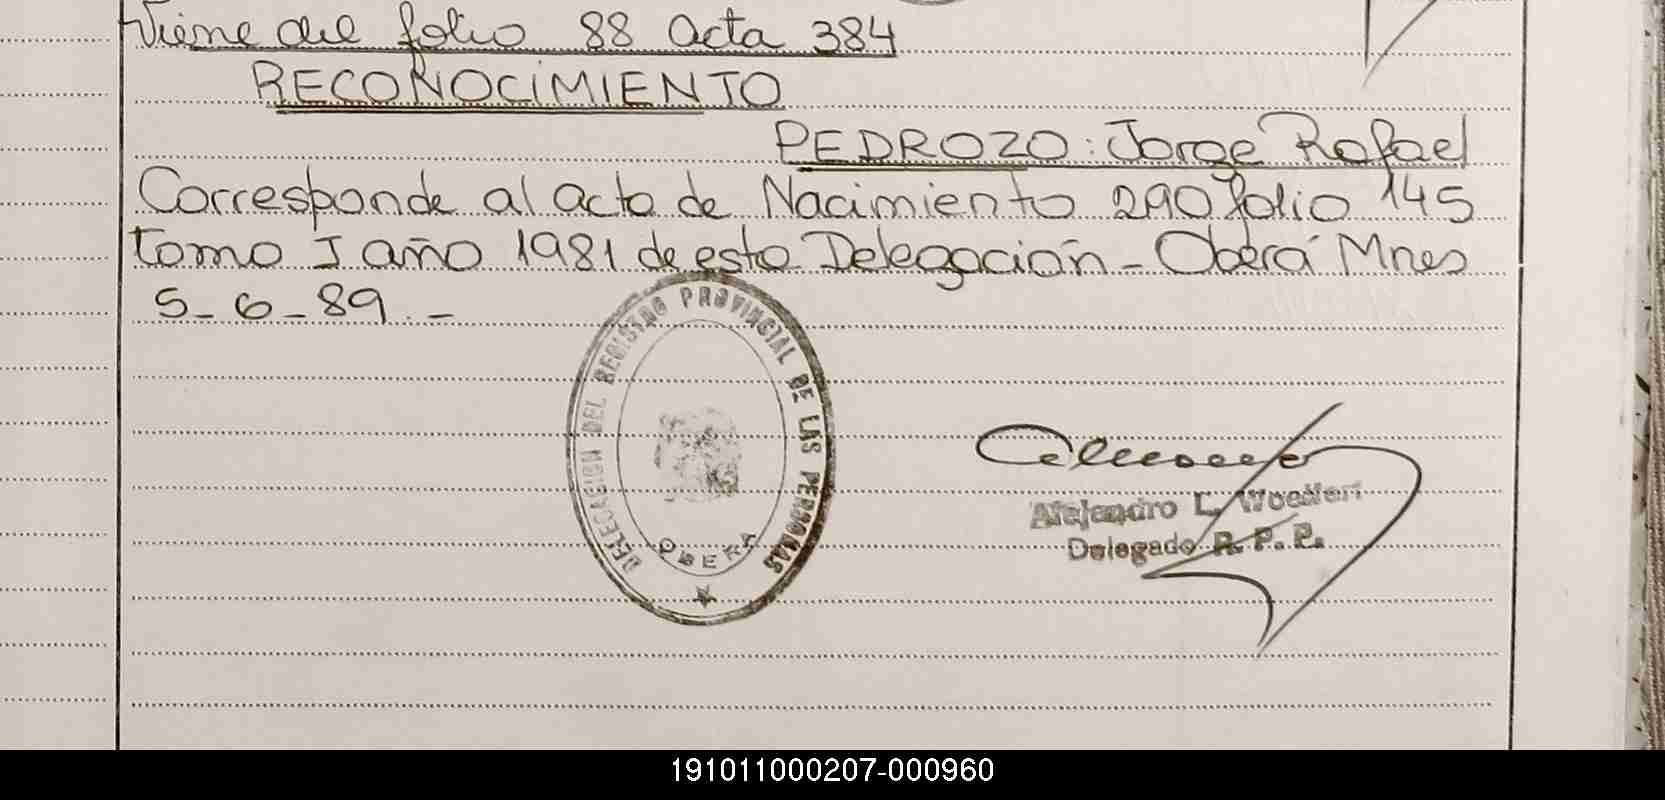 Viene del folio 88 Acta 384
RECONOCIMIENTO
PEDROZO: Jorge Rafael
Corresponde al acta de Nacimiento 290 folio 145
tomo I año 1981 de esta Delegación - Oberá Mnes
5-6-89.-
DELEGACION DEL REGISTRO PROVINCIAL DE LAS PERSONAS
OBERA
Alejandro L.
Delegado R. P. P.
191011000207-000960